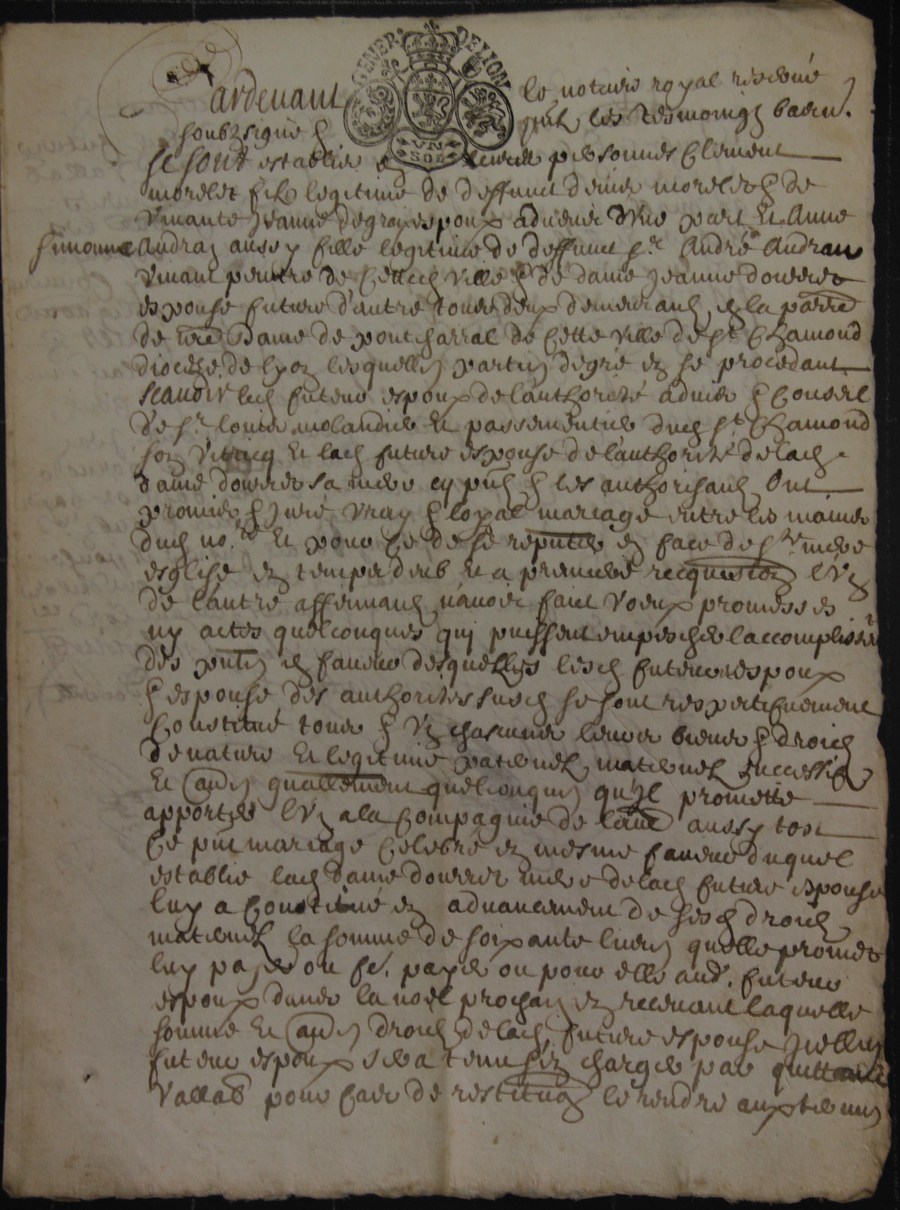 GENER DE LION
UN SOL
Pardevant le notaire royal reservé
soubzsigné & les tesmoings bas nn.
se sont establis personnes Clement
morelet filz legitime de deffunct morelet & de
vivante Jeanne degray espoux advenir d'une part Et Anne
Simonne Audran aussy fille legitime de deffunct sr. André Audran
vivant peintre de cette ville & de dame Jeanne dourret
espouse future d'autre tous deux demeurants en la parre
de nre Dame de pontcharral de cette ville de st Chamond
diocese de lyon lesquelles parties de gré en se procedant
scavoir led futeur espoux de l'authorité advis & Conseil
de sr. louis molandier Me passementier dud st Chamond
son Et lad future espouse de l'authorité de lad
dame dourret sa mere cy pnt & les authorisant Ont
promis & juré vray & loyal mariage entre les mains
dud nore Et pour ce de se en face de ste mere
esglise en temps deub Et a premiere requisition l'un
de l'autre affirmant n'avoir faict voeux promesses
ny actes quelconques qui puissent empescher laccomplissemt
des pntes en faveur desquelles lesd futeurs espoux
& espouse des authorités susd se sont respectivement
Constitué tous & un chascuns leurs biens & droicts
de nature Et legitime paternelz maternelz successifz
Et quelconques qu'ilz promettent
apporter l'un a la Compagnie de l'autre aussy tost
Ce pnt mariage Celebré en mesme faveur duquel
establie lad dame dourret mere de lad future espouse
luy a Constitué en advancement de sesd droicts
maternelz la somme de soixante livres quelle promet
luy payer ou fe. payer ou pour elle aud. futeur
espoux dans la noel prochain en recevant laquelle
somme Et droicts de lad future espouse
futeur espoux sera tenu s'en charger par quittance
vallable pour Cas de restitution le rendre aux